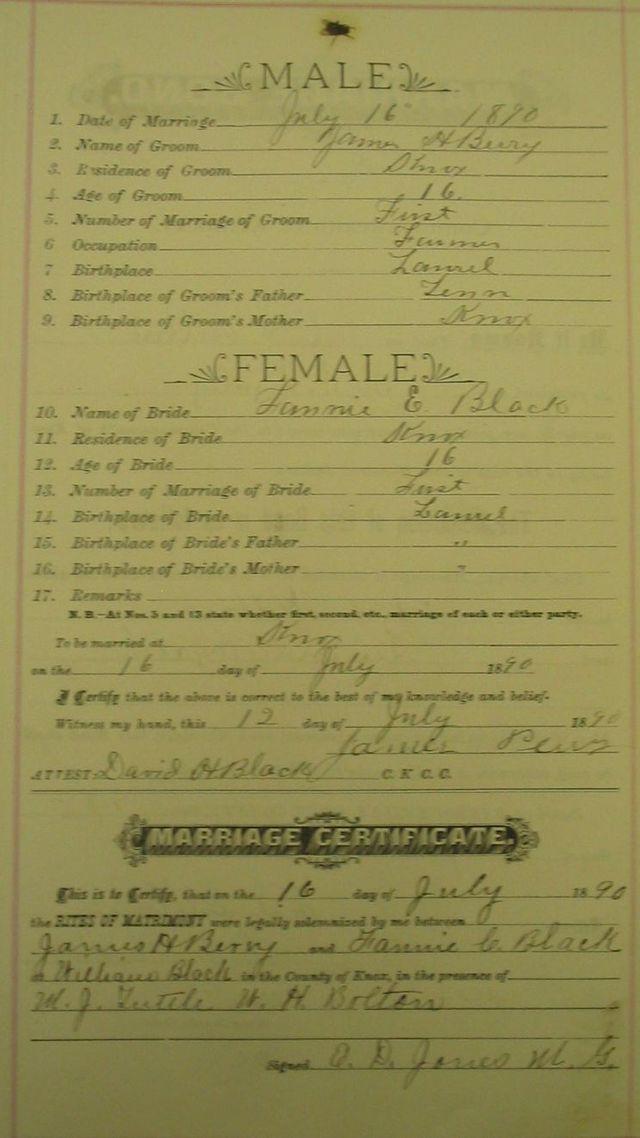 MALE
1. Date of Marriage July 16 1890
2. Name of Groom James H Berry
3. Residence of Groom Knox
4. Age of Groom 16
5. Number of Marriage of Groom First
6 Occupation Farmer
7 Birthplace Laurel
8. Birthplace of Groom's Father Tenn
9. Birthplace of Groom's Mother Knox
FEMALE
10. Name of Bride Fannie E. Black
11. Residence of Bride Knox
12. Age of Bride 16
13. Number of Marriage of Bride First
14. Birthplace of Bride Laurel
15. Birthplace of Bride's Father "
16. Birthplace of Bride's Mother "
17. Remarks
N. B.—At Nos. 5 and 13 state whether first, second, etc., marriage of each or either party.
To be married at Knox
on the 16 day of July 1890
I Certify that the above is correct to the best of my knowledge and belief.
Witness my hand, this 12 day of July 1890
James
ATTEST: David H Black C. K. C. C.
MARRIAGE CERTIFICATE.
This is to Certify, that on the 16 day of July 1890
the RITES OF MATRIMONY were legally solemnized by me between
James H Berry and Fannie E. Black
at William Black in the County of Knox, in the presence of
M. J. Tuttle W. H. Bolton
Signed A. D. Jones M. G.